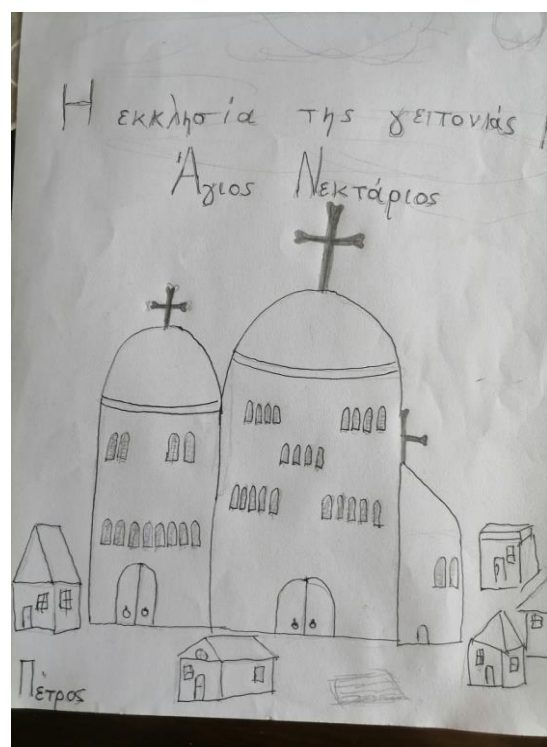 Η εκκλησία της γειτονιάς
Άγιος Νεκτάριος
Πέτρος